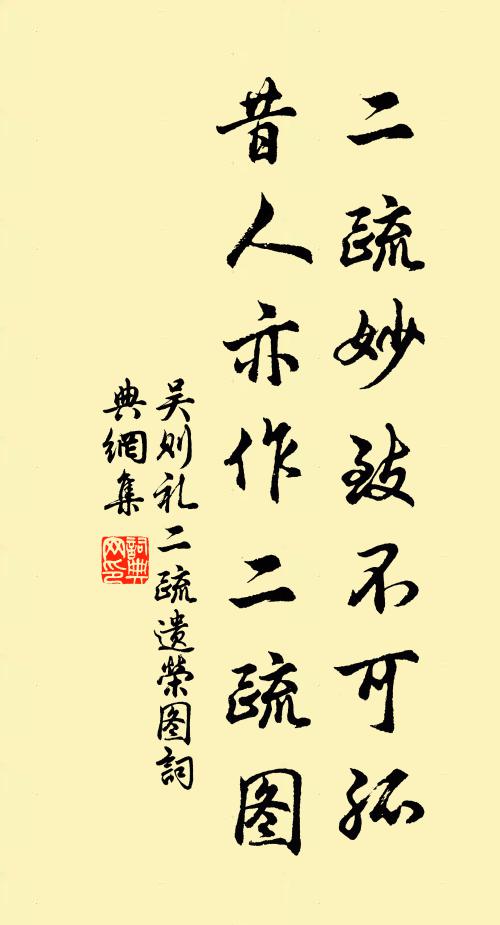 二疏妙致不可孤
昔人亦作二疏图
吴则礼二疏遗荣图词
典網集
詞典網印